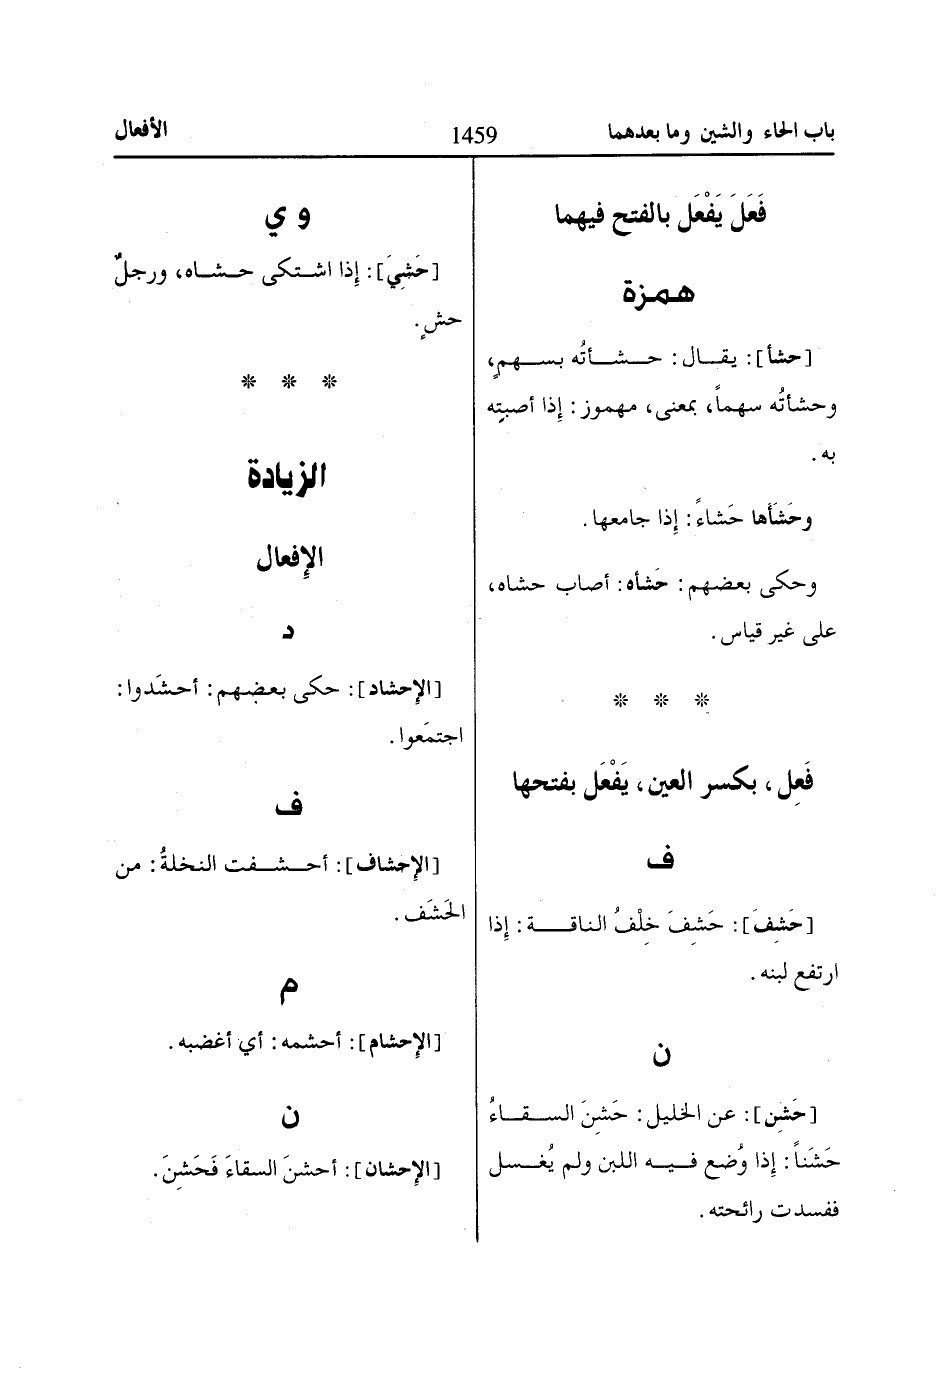 باب الحاء والشين وما بعدهما
1459
الأفعال
فَعَلَ يَفْعَل بالفتح فيهما
همزة
[حشأ]: يقال: حشأتُه بسهمٍ،
وحشأتُه سهماً، بمعنى، مهموز: إذا أصبته
به.
وحَشَأها حَشاءً: إذا جامعها.
وحكى بعضهم: حَشأه: أصاب حشاه،
على غير قياس.
* * *
فَعِل، بكسر العين، يَفْعَل بفتحها
ف
[حَشِفَ]: حَشِفَ خِلْفُ الناقة: إذا
ارتفع لبنه.
ن
[حَشِن]: عن الخليل: حَشِنَ السقاءُ
حَشَناً: إذا وُضع فيه اللبن ولم يُغسل
ففسدت رائحته.
و ي
[حَشِيَ]: إذا اشتكى حشاه، ورجلٌ
حشٍ.
* * *
الزيادة
الإفعال
د
[الإحشاد]: حكى بعضهم: أحشَدوا:
اجتمَعوا.
ف
[الإحشاف]: أحشفت النخلةُ: من
الحَشَف.
م
[الإحشام]: أحشمه: أي أغضبه.
ن
[الإحشان]: أحشنَ السقاءَ فَحَشِنَ.